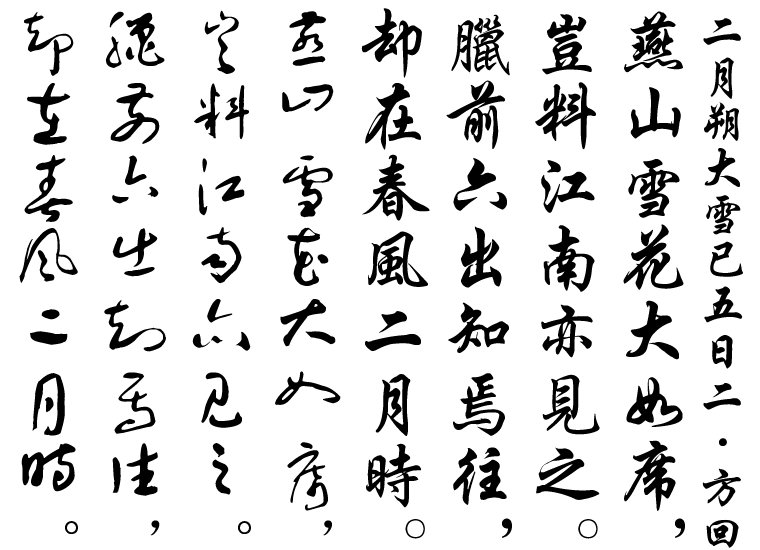 二月朔大雪已五日二·方回
燕山雪花大如席，
豈料江南亦見之。
臘前六出知焉往，
却在春風二月時。
燕山雪花大如席，
豈料江南亦見之。
臘前六出知焉往，
却在春風二月時。